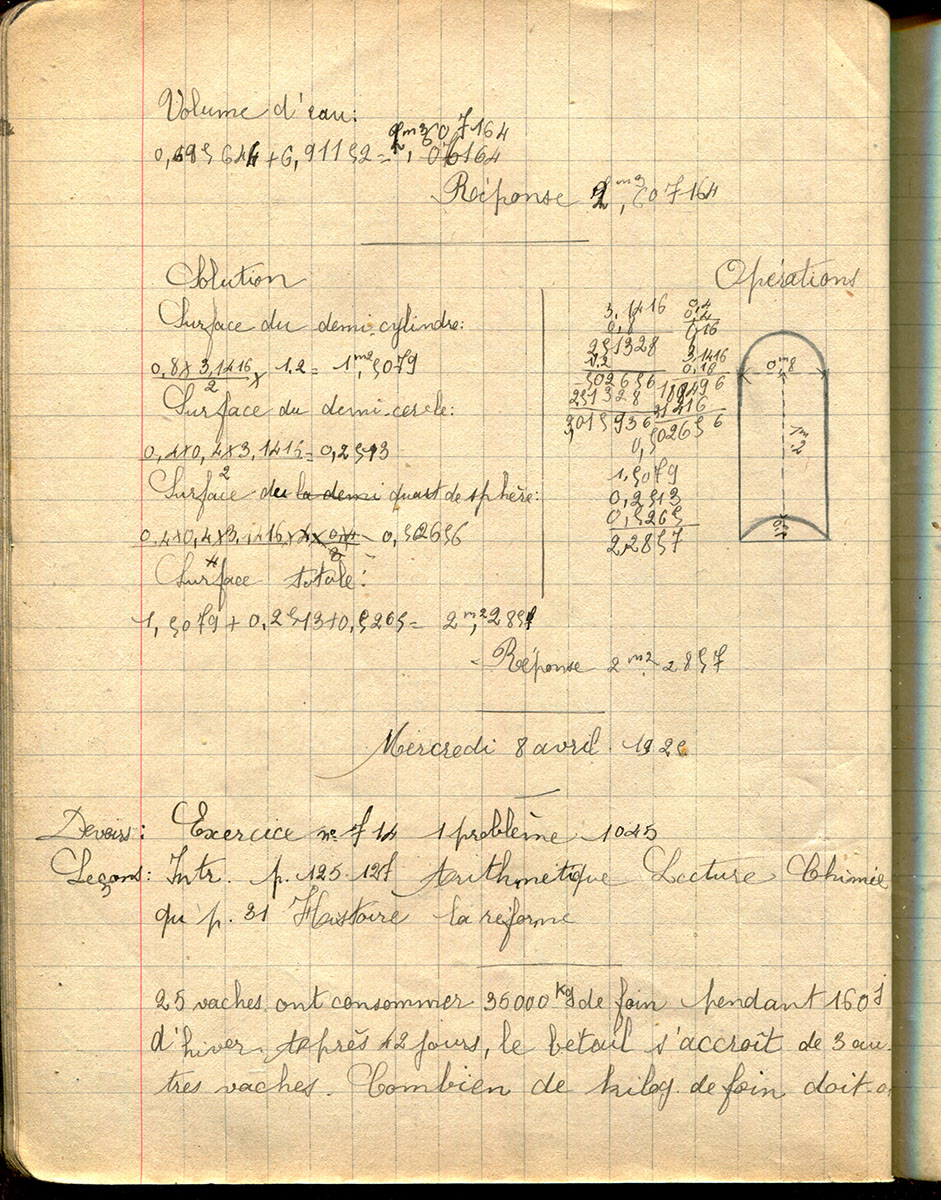 Volume d'eau:
0,695644 + 6,91152 = 2m3,607164
Réponse 2m3,607164
Solution
Opérations
Surface du demi-cylindre:
0,8 x 3,1416 x 1.2 = 1m2,5079
2
Surface du demi-cercle:
0,4x0,4x3,1415 = 0,2513
2
Surface de la demi quart de sphère:
0,4x0,4x3,1416x4x0,4 = 0,52656
4
Surface totale:
1,5079 + 0,2513 + 0,5265 = 2m2,2857
Réponse 2m2 2857
3,1416
0,8
251328
1.2
502656
251328
3,015936
0,4
0,4
0,16
3,1416
0,16
188496
31416
0,502656
1,5079
0,2513
0,5265
2,2857
0m8
1m2
Mercredi 8 avril 192
Devoirs: Exercice no 714 1 problème 1045
Leçons: Intr. p. 125. 127 Arithmétique Lecture Chimie
qu' p. 31 Histoire la réforme
25 vaches ont consommer 36000 Kg de foin pendant 160 j
d'hiver. Après 42 jours, le bétail s'accroît de 3 au-
tres vaches. Combien de kilog. de foin doit-o